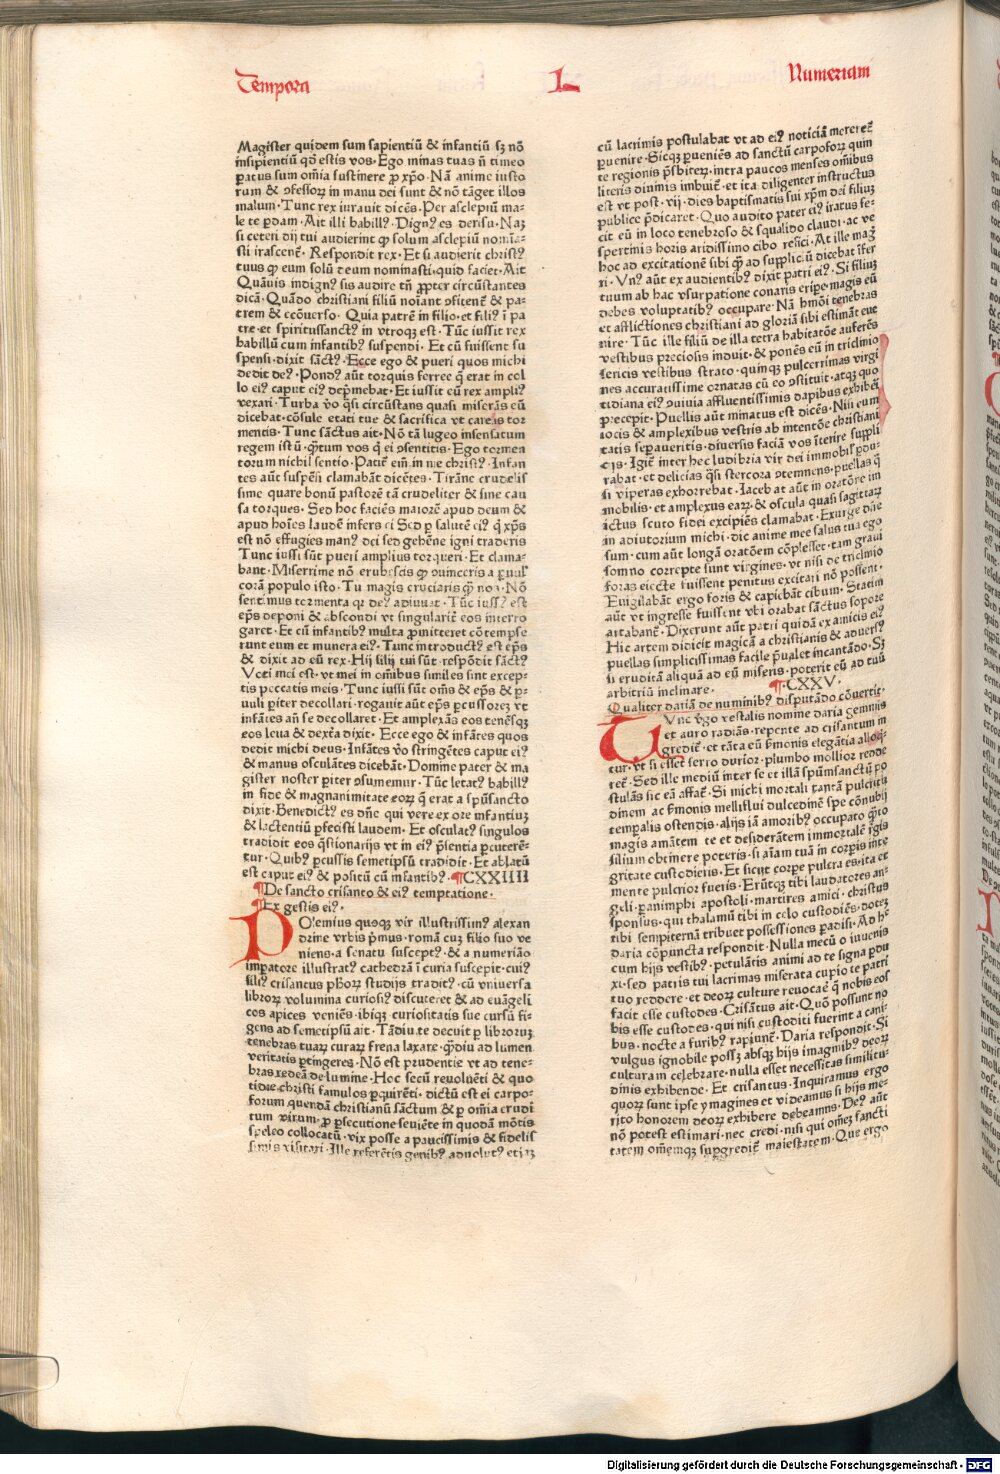 Tempora L Numeriani
Magister quidem sum sapientiū & infantiū sꝫ nō
insipientiū qđ estis vos. Ego minas tuas ñ timeo
ꝑatus sum om̄ia sustinere ꝓ xp̄o. Nā anime iusto
rum & ꝯfessoꝝ in manu dei sunt & nō tāget illos
malum. Tunc rex iurauit dicēs. Per asclepiū ma
le te ꝑdam. Ait illi babillꝰ. Dignꝰ es derisu. Naꝫ
si ceteri dij tui audierint ꝙ solum asclepiū nomīa
sti irascent̄. Respondit rex. Et si audierit christꝰ
tuus ꝙ eum solū deum nominasti. quid faciet. Ait
Quāuis indignꝰ sis audire tñ ꝓpter circūstantes
dicā. Quādo christiani filiū noīant ꝯfitent̄ & pa
trem & ecōuerso. Quia patrē in filio. et filiꝰ ī pa
tre. et spiritussanctꝰ in vtroqꝫ est. Tūc iussit rex
babillū cum infantibꝰ suspendi. Et cū fuissent su
spensi. dixit sāctꝰ. Ecce ego & pueri quos michi
dedit deꝰ. Pondꝰ aūt torquis ferree q̄ erat in col
lo eiꝰ caput eiꝰ dep̄mebat. Et iussit eū rex ampliꝰ
vexari. Turba v̄o q̄si circūstans quasi miserās eū
dicebat. cōsule etati tue & sacrifica vt careas tor
mentis. Tunc sāctus ait. Nō tā lugeo insensatum
regem istū. q̄tum vos q̄ ei ꝯsentitis. Ego tormen
torum nichil sentio. Patiēt̄ em̄ in me christꝰ. Infan
tes aūt suspēsi clamabāt dicētes. Tirāne crudelis
sime quare bonū pastorē tā crudeliter & sine cau
sa torques. Sed hoc faciēs maiorē apud deum &
apud hoīes laudē infers ei Sed ꝑ salutē eiꝰ q̄ xp̄s
est nō effugies manꝰ dei sed gehēne igni traderis
Tunc iussi sūt pueri amplius torqueri. Et clama
bant. Miserrime nō erubescis ꝙ
corā populo isto. Tu magis cruciaris q̄ nos. Nō
sentimus tormenta qr deꝰ adiuuat. Tūc iussꝰ est
ep̄s deponi & abscondi vt singulariē eos interro
garet. Et cū infantibꝰ multa ꝓmitteret cōtempse
runt eum et munera eiꝰ. Tunc introductꝰ est ep̄s
& dixit ad eū rex. Hij filij tui sūt. respōdit sāctꝰ
Vere mei est. vt mei in omībus similes sint excep
tis peccatis meis. Tunc iussi sūt om̄s & ep̄s & ꝑ
uuli ꝑiter decollari. rogauit aūt ep̄s ꝑcussoreꝫ vt
infātes añ se decollaret. Et amplexās eos tenēsqꝫ
eos leua & dext̄a dixit. Ecce ego & infātes quos
dedit michi deus. Infātes v̄o stringētes caput eiꝰ
& manus osculātes dicebāt. Domine pater & ma
gister noster ꝑiter ꝯsumemur. Tūc letatꝰ babillꝰ
in fide & magnanimitate eoꝝ q̄ erat a spūsancto
dixit. Benedictꝰ es dn̄e qui vere ex ore infantiuꝫ
& lactentiū ꝑfecisti laudem. Et osculatꝰ singulos
tradidit eos q̄stionarijs vt in eiꝰ p̄sentia ꝑcuterē
tur. Quibꝰ ꝑcussis semetipsū tradidit. Et ablatū
est caput eiꝰ & positū cū infantibꝰ. ¶CXXIIII
¶De sancto crisanto & eiꝰ temptatione.
¶Ex gestis eiꝰ.
POlemius quoqꝫ vir illustrissimꝰ alexan
drine vrbis p̄mus. romā cuꝫ filio suo ve
niens. a senatu susceptꝰ. & a numeriāo
imꝑatore illustratꝰ cathedrā ī curia suscepit. cuiꝰ
filiꝰ crisantus ph̄oꝝ studijs traditꝰ. cū vniuersa
libroꝝ volumina curiosiꝰ discuteret & ad euāgeli
cos apices veniēs. ibiqꝫ curiositatis sue cursū fi
gens ad semetipsū ait. Tādiu te decuit ꝑ libroruꝫ
tenebras tuaꝝ curaꝝ frena laxare. q̄diu ad lumen
veritatis ꝑtingeres. Nō est prudentie vt ad tene
bras redeā de lumine. Hoc secū reuoluēti & quo
tidie christi famulos ꝑquirēti. dictū est ei carpo
forum quendā christianū sāctum & ꝑ om̄ia erudi
tum virum. ꝓ ꝑsecutione seuiēte in quodā mōtis
speleo collocatū. vix posse a paucissimis & fidelis
simis visitari. Ille referētis genibꝰ aduolutꝰ etiaꝫ
cū lacrimis postulabat vt ad eiꝰ noticiā mereret̄
ꝑuenire. Sicqꝫ ꝑueniēs ad sanctū carpofoꝝ quin
te regionis p̄sbiteꝝ. intra paucos menses om̄ibus
literis diuinis imbuit̄. et ita diligenter instructus
est vt post .vij. dies baptismatis sui xp̄m dei filiuꝫ
publice p̄dicaret. Quo audito pater eiꝰ iratus fe
cit eū in loco tenebroso & squalido claudi. ac ve
spertinis horis aridissimo cibo refici. At ille magꝭ
hoc ad excitationē sibi q̄ ad suppliciū dicebat īfer
ri. Vnꝰ aūt ex audientibꝰ dixit patri eiꝰ. Si filiuꝫ
tuum ab hac vsurpatione conaris eripe. magis eū
debes voluptatibꝰ occupare. Nā hm̄oi tenebras
et afflictiones christiani ad gloriā sibi estimāt eue
nire. Tūc ille filiū de illa tetra habitatōe auferēs
vestibus preciosis induit. & ponēs eū in triclinio
sericis vestibus strato. quinqꝫ pulcerrimas virgi
nes accuratissime ornatas cū eo ꝯstituit. atqꝫ quo
tidiana eiꝰ ꝯuiuia affluentissimis dapibus exhiberi
p̄recepit. Puellis aūt minatus est dicēs. Nisi eum
iocis & amplexibus vestris ab intentōe christiani
tatis seꝑaueritis. diuersis faciā vos īterire suppli
cijs. Igit̄ inter hec ludibria vir dei immobilꝭ ꝑdu
rabat. et delicias q̄si stercora ꝯtemnens. puellas q̄
si viperas exhorrebat. Iacebat aūt in oratōne im
mobilis. et amplexus eaꝝ. & oscula quasi sagittaꝝ
ictus scuto fidei excipiēs clamabat. Exurge dn̄e
in adiutorium michi. dic anime mee salus tua ego
sum. cum aūt longā oratōem cōplesset. tam graui
somno correpte sunt virgines. vt nisi de triclinio
foras eiecte fuissent penitus excitari nō possent.
Euigilabāt ergo foris & capiebāt cibum. Statim
aūt vt ingresse fuissent vbi orabat sāctus sopore
artabant̄. Dixerunt aūt patri quidā ex amicis eiꝰ
Hic artem didicit magicā a christianis & aduersꝰ
puellas simplicissimas facile p̄ualet incantādo. Sꝫ
si eruditā aliquā ad eū miseris. poterit eū ad tuū
arbitriū inclinare. ¶CXXV.
Qualiter dariā de numinibꝰ disputādo cōuertit.
TVnc v̄go vestalis nomine daria gemmis
et auro radiās. repente ad crisantum in
gredit̄. et tāta eū ẜmonis elegātia alloq̄
tur. vt si esset ferro durior. plumbo mollior redde
ret̄. Sed ille mediū inter se et illā spūmsanctū po
stulās sic eā affat̄. Si michi mortali tantā pulcritu
dinem ac ẜmonis melliflui dulcedinē spe cōnubij
temꝑalis ostendis. alijs iā amoribꝰ occupato q̄to
magis amātem te et desiderātem immortalē regis
filium obtinere poteris. si aīam tuā in corpis inte
gritate custodieris. Et sicut corpe pulcra es. ita et
mente pulcrior fueris. Erūtqꝫ tibi laudatores an
geli. ꝑanimphi apostoli. martires amici. christus
sponsus. qui thalamū tibi in celo custodiēs. doteꝫ
tibi sempiternā tribuet possessiones ꝑadisi. Ad hᷓ
daria cōpuncta respondit. Nulla mecū o iuuenis
cum hijs vestibꝰ. petulātis animi ad te signa ꝑdu
xi. sed patris tui lacrimas miserata cupio te patri
tuo reddere. et deoꝝ culture reuocare q̄ nobis eos
facit esse custodes. Crisātus ait. Quō possunt no
bis esse custodes. qui nisi custoditi fuerint a cani
bus. nocte a furibꝰ rapiunt̄. Daria respondit. Si
vulgus ignobile possꝫ absqꝫ hijs imaginibꝰ deoꝝ
culturam celebrare. nulla esset necessitas similitu
dinis exhibende. Et crisantus. Inquiramus ergo
quoꝝ sunt ipse ymagines et videamus si hijs me
rito honorem deoꝝ exhibere debeamus. Deꝰ aūt
nō potest estimari. nec credi. nisi qui omēꝫ sancti
tatem om̄emqꝫ suꝑgredit̄ maiestatem. Que ergo
Digitalisierung gefördert durch die Deutsche Forschungsgemeinschaft - DFG